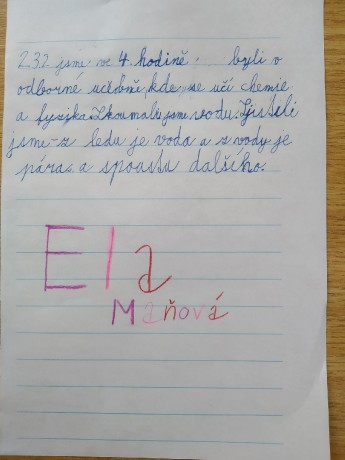 2.3.2. jsme ve 4. hodině byli v
odborné učebně, kde se učí chemie
a fyzika. Zkoumali jsme vodu. Zjistili
jsme-z ledu je voda a z vody je
pára a spoustu dalšího.
Ela
Maňová